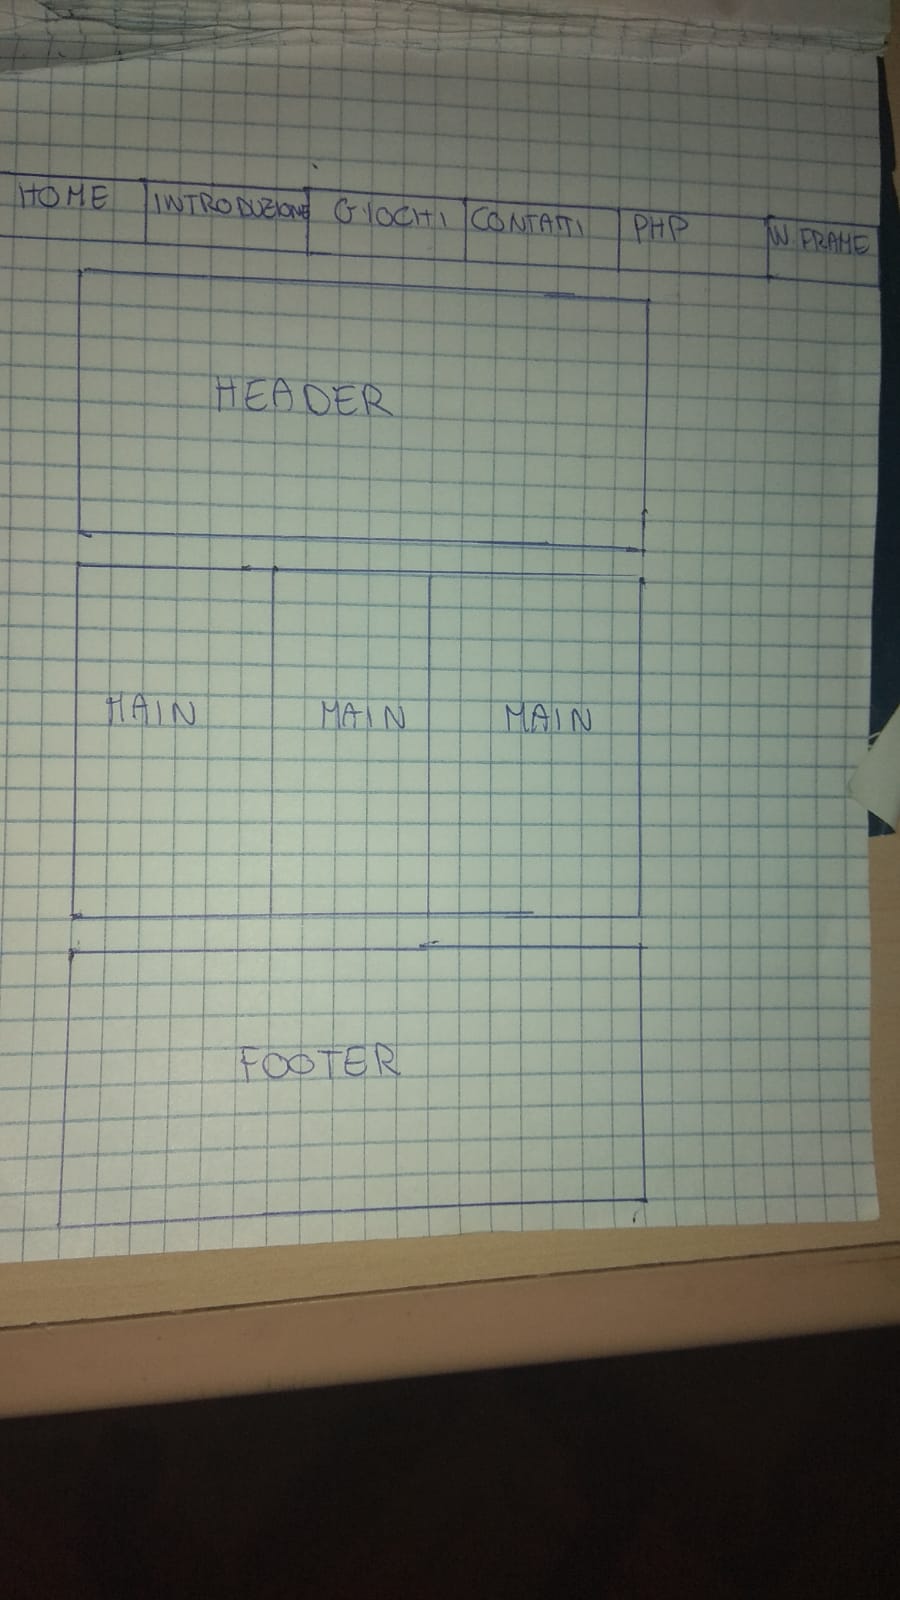 HOME INTRODUZIONE GIOCHI CONTATTI PHP W.FRAME
HEADER
MAIN MAIN MAIN
FOOTER